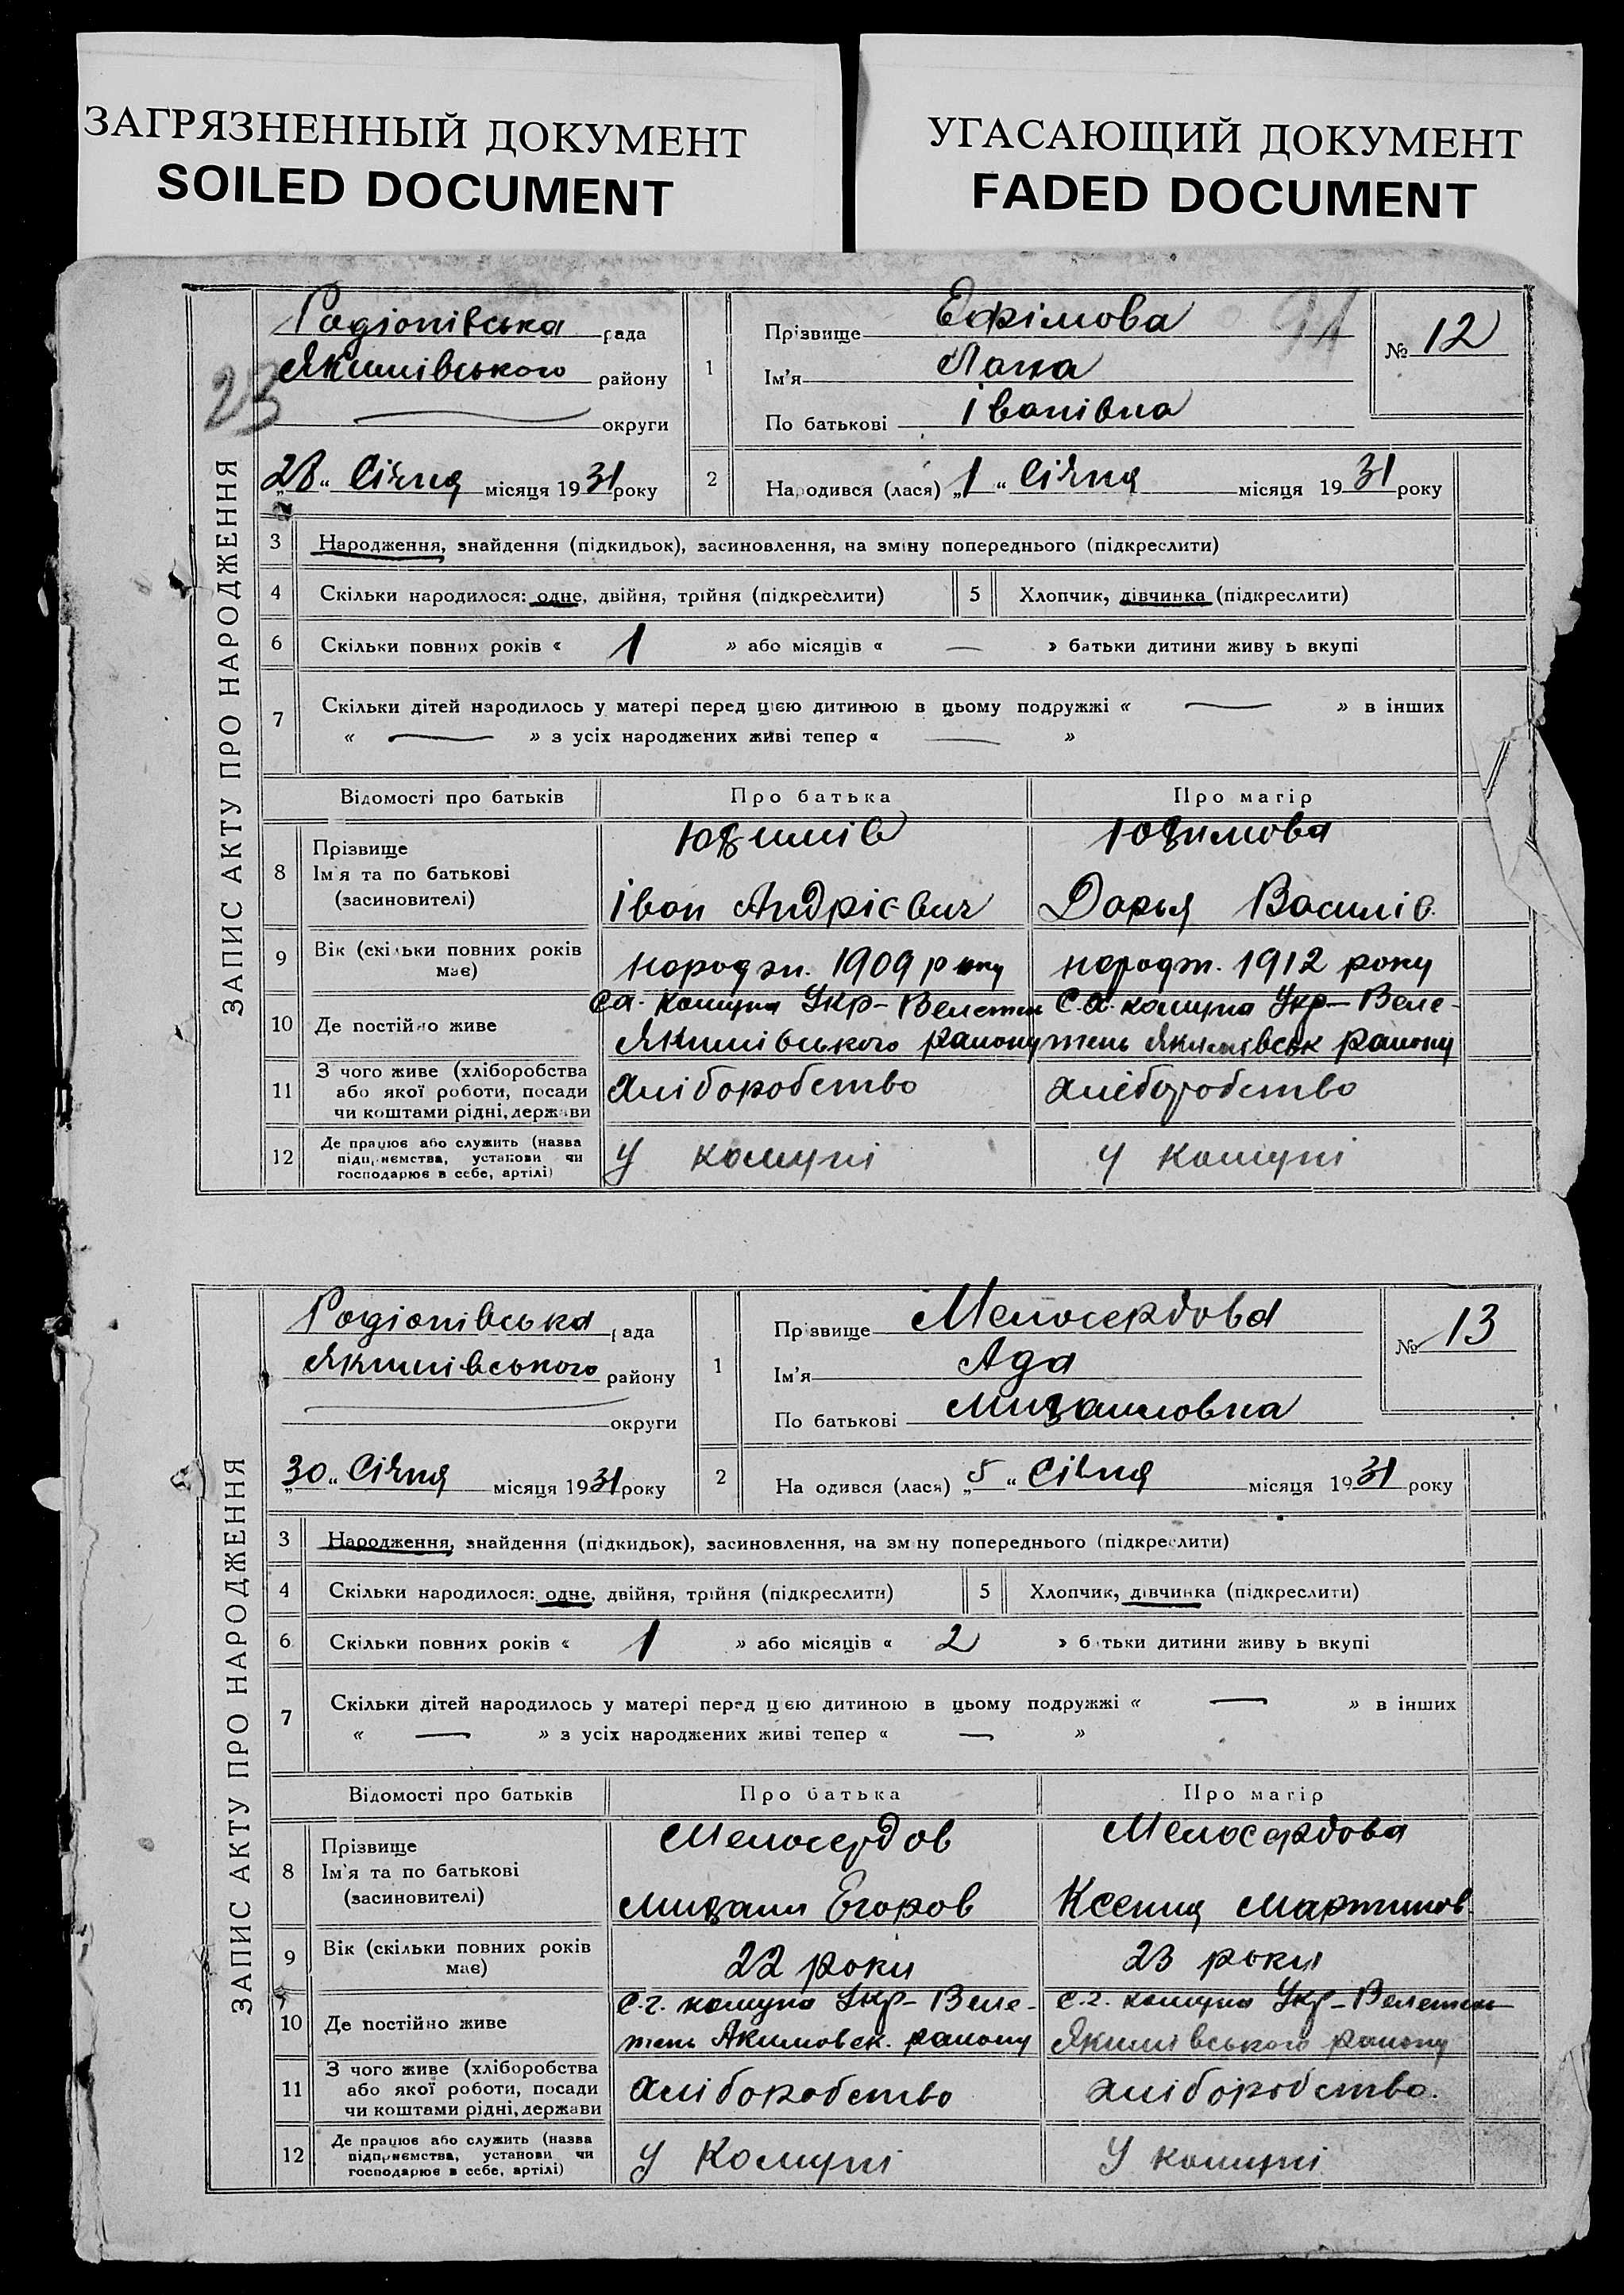 ЗАГРЯЗНЕННЫЙ ДОКУМЕНТ
SOILED DOCUMENT
УГАСАЮЩИЙ ДОКУМЕНТ
FADED DOCUMENT
ЗАПИС АКТУ ПРО НАРОДЖЕННЯ
23
Родіонівська рада
Якимівського району
округи
„28“ Січня місяця 1931 року
1
Прізвище Ефімова
Ім'я
По батькові Іванівна
91
№ 12
2
Народився (лася) „1“ Січня місяця 1931 року
3 Народження, знайдення (підкидьок), засиновлення, на зміну попереднього (підкреслити)
4 Скільки народилося: одне, двійня, трійня (підкреслити)
5 Хлопчик, дівчинка (підкреслити)
6 Скільки повних років « 1 » або місяців « — » батьки дитини живу ь вкупі
7 Скільки дітей народилось у матері перед цією дитиною в цьому подружжі « — » в інших
« — » з усіх народжених живі тепер « — »
Відомості про батьків Про батька Про матір
8 Прізвище
Ім'я та по батькові
(засиновителі)
Іван Андрієвич
Дарья Василів.
9 Вік (скільки повних років має)
народж. 1909 року
народж. 1912 року
10 Де постійно живе
комуна Укр-Велетен
Якимівського району
комуна Укр-Веле-
тень Якимівськ району
11 З чого живе (хліборобства
або якої роботи, посади
чи коштами рідні, держави
хліборобство
хліборобство
12 Де працює або служить (назва
підприємства, установи чи
господарює в себе, артілі)
У комуні
У комуні
ЗАПИС АКТУ ПРО НАРОДЖЕННЯ
Родіонівська рада
Якимівського району
округи
„30“ Січня місяця 1931 року
1
Прізвище Мелосердова
Ім'я Ада
По батькові Михаиловна
№ 13
2
На одився (лася) „5“ Січня місяця 1931 року
3 Народження, знайдення (підкидьок), засиновлення, на зміну попереднього (підкреслити)
4 Скільки народилося: одне, двійня, трійня (підкреслити)
5 Хлопчик, дівчинка (підкреслити)
6 Скільки повних років « 1 » або місяців « 2 » батьки дитини живу ь вкупі
7 Скільки дітей народилось у матері перед цією дитиною в цьому подружжі « — » в інших
« — » з усіх народжених живі тепер « — »
Відомості про батьків Про батька Про матір
8 Прізвище
Ім'я та по батькові
(засиновителі)
Мелосердов
Михаил Егоров
Мелосердова
Ксения Мартинов.
9 Вік (скільки повних років має)
22 роки
23 роки
10 Де постійно живе
с.г. комуна Укр-Веле-
тень Акимовск. району
с.г. комуна Укр-Велетень
Якимівського району
11 З чого живе (хліборобства
або якої роботи, посади
чи коштами рідні, держави
хліборобство
хліборобство.
12 Де працює або служить (назва
підприємства, установи чи
господарює в себе, артілі)
У Комуні
У комуні